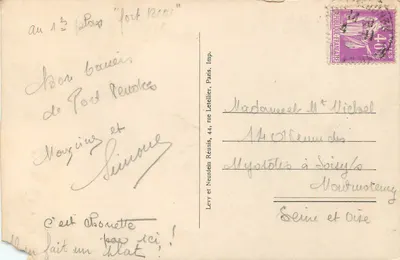 au 1er plan "fort
Bon baisers
de Port Vendres
et
Simone
c'est chouette
par ici !
fait un
Levy et Neurdein Réunis, 44, rue Letellier, Paris, Imp.
Madame et Mr Michel
14 Avenue des
Mystoles à Soisy s/s
Montmorency
Seine et Oise